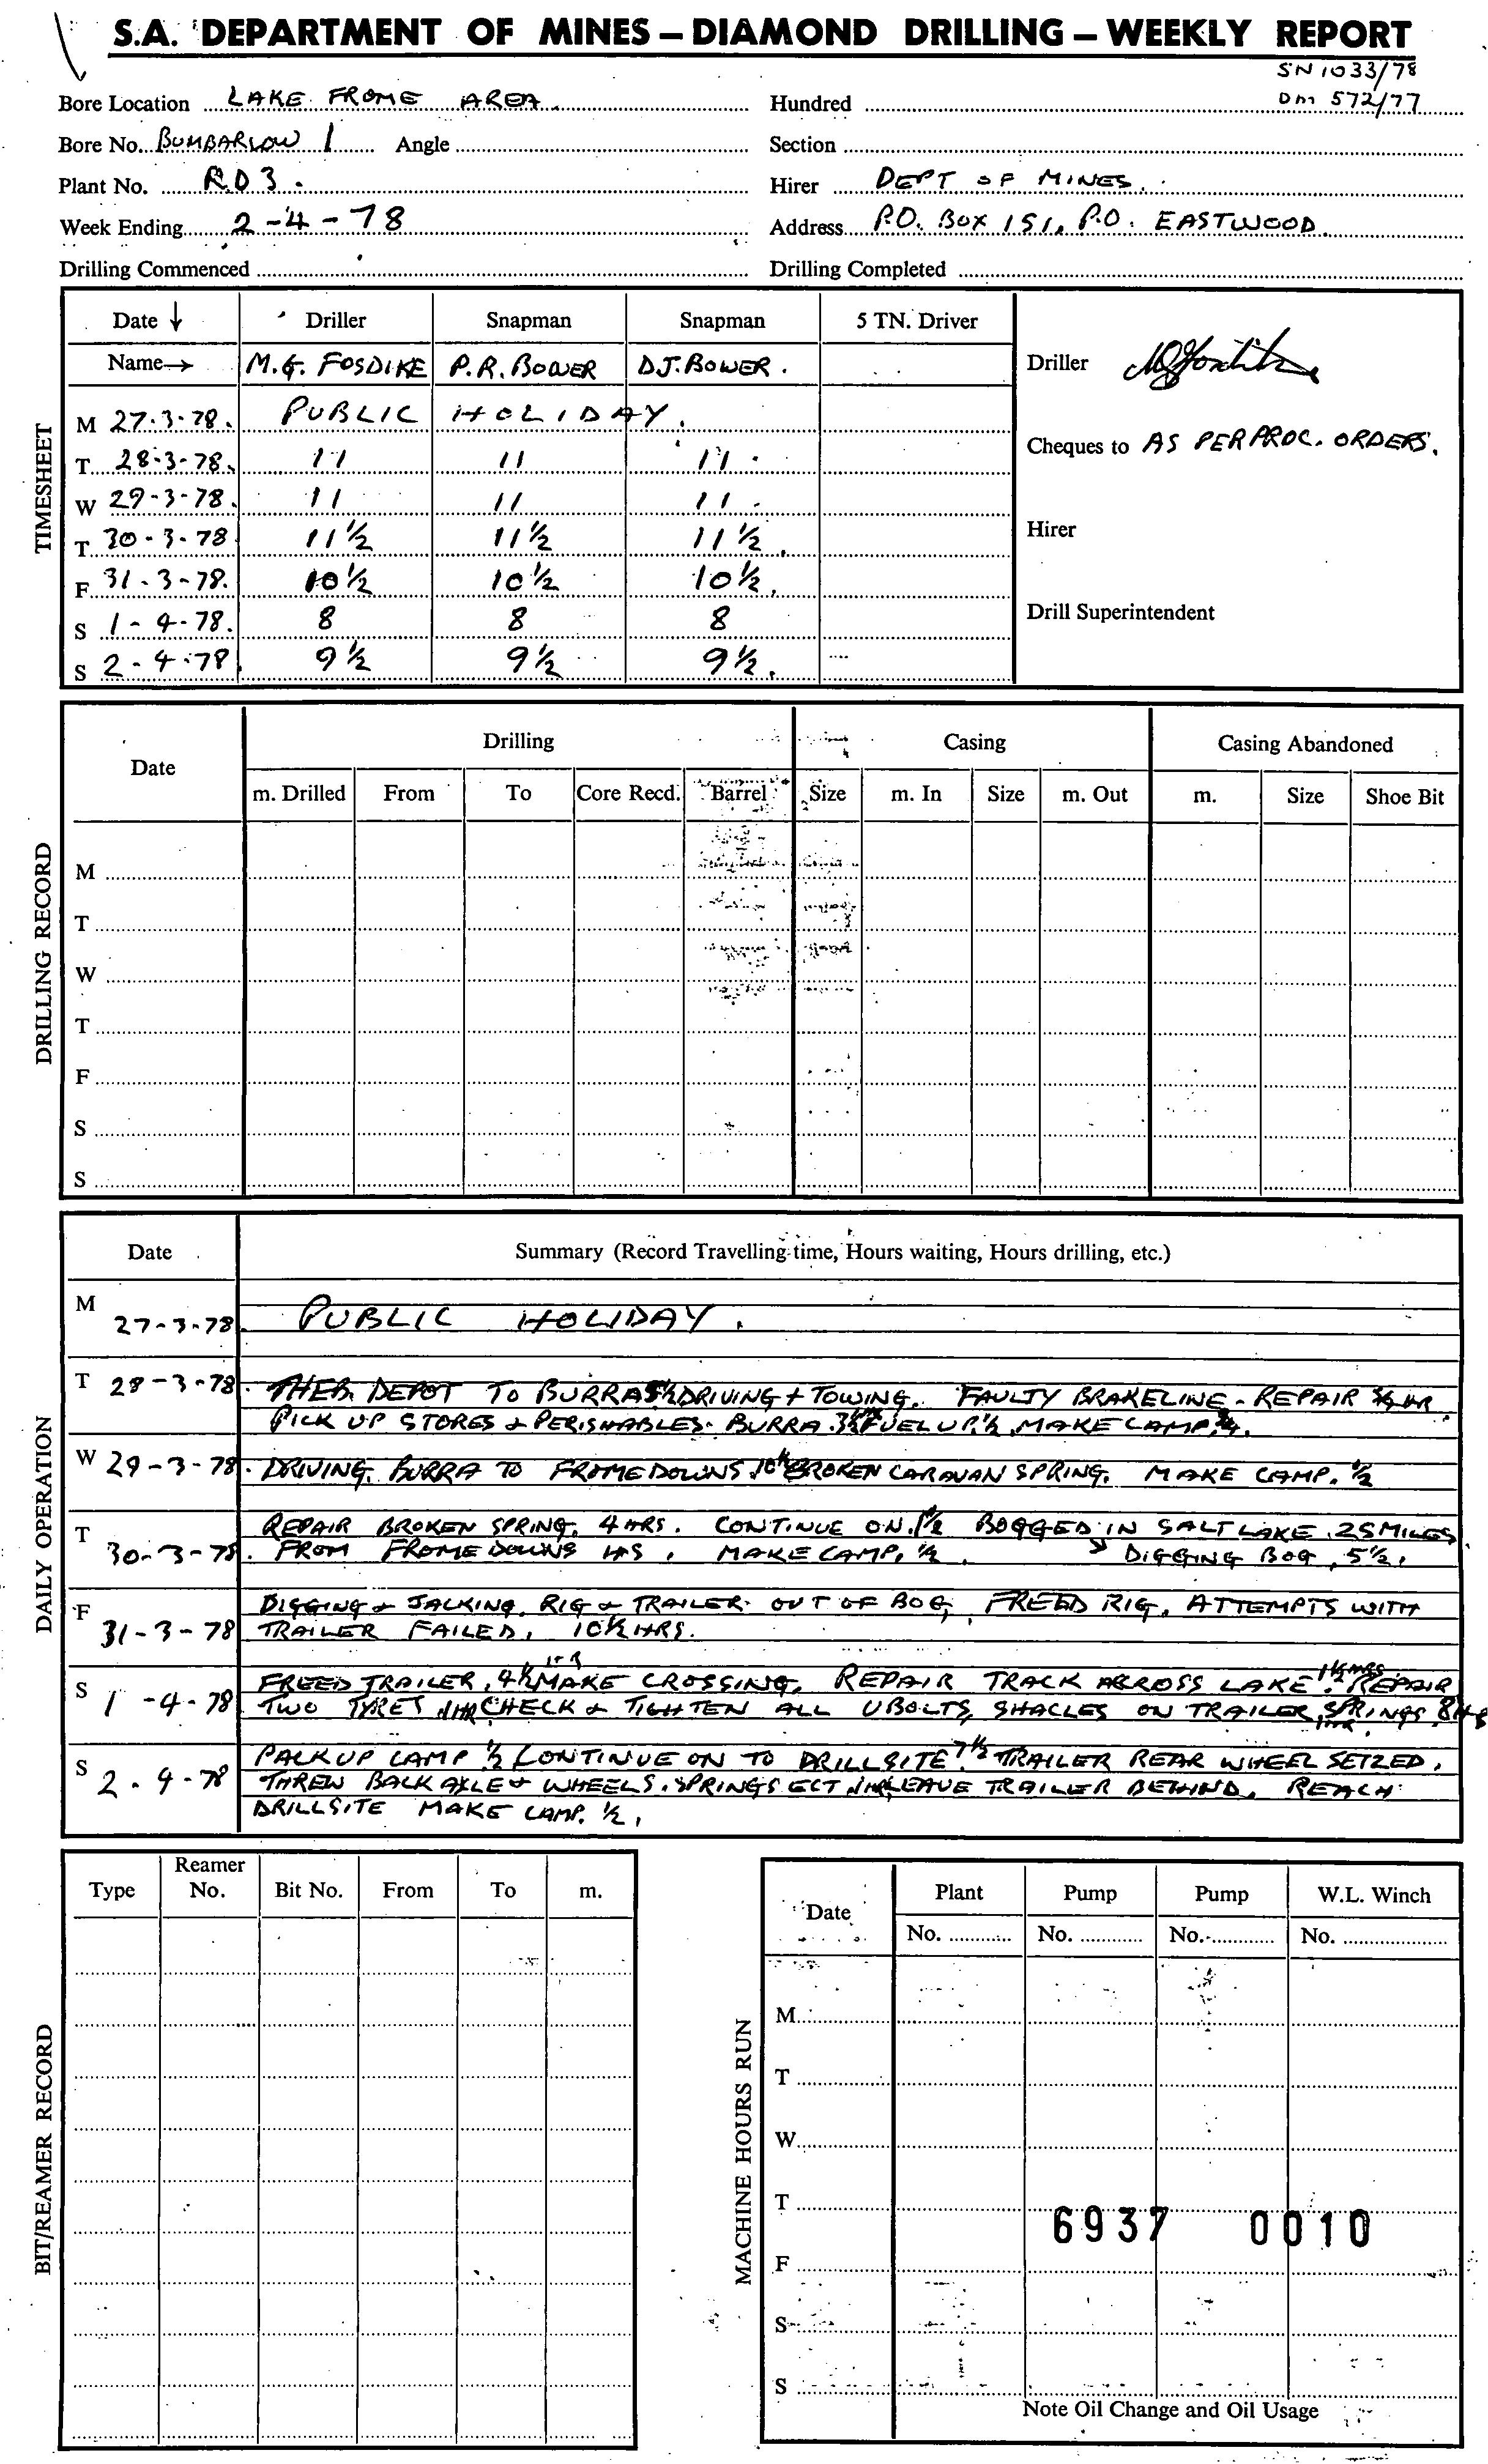 S.A. DEPARTMENT OF MINES – DIAMOND DRILLING – WEEKLY REPORT
SN 1033/78
Bore Location LAKE FROME AREA Hundred DM 572/77
Bore No. BUMBARLOW 1 Angle Section
Plant No. RD3. Hirer DEPT OF MINES.
Week Ending 2-4-78 Address P.O. BOX 151, P.O. EASTWOOD.
Drilling Commenced Drilling Completed
TIMESHEET
Date ↓ Driller Snapman Snapman 5 TN. Driver
Name→ M.G. FOSDIKE P.R. BOWER D.J. BOWER. Driller
M 27.3.78. PUBLIC HOLIDAY.
T 28-3-78. 11 11 11. Cheques to AS PER PROC. ORDERS.
W 29-3-78. 11 11 11.
T 30-3-78 11½ 11½ 11½. Hirer
F 31-3-78. 10½ 10½ 10½.
S 1-4-78. 8 8 8 Drill Superintendent
S 2-4-78 9½ 9½ 9½.
DRILLING RECORD
Date Drilling Casing Casing Abandoned
m. Drilled From To Core Recd. Barrel Size m. In Size m. Out m. Size Shoe Bit
M
T
W
T
F
S
S
DAILY OPERATION
Date Summary (Record Travelling time, Hours waiting, Hours drilling, etc.)
M 27-3-78 PUBLIC HOLIDAY.
T 28-3-78. THEB. DEPOT TO BURRA 5½ DRIVING + TOWING. FAULTY BRAKELINE - REPAIR ¾ HR.
PICK UP STORES & PERISHABLES. BURRA 3½ FUEL UP. ½, MAKE CAMP. ¾.
W 29-3-78. DRIVING. BURRA TO FROME DOWNS 10½ BROKEN CARAVAN SPRING. MAKE CAMP. ½
T REPAIR BROKEN SPRING. 4 HRS. CONTINUE ON. 1½ BOGGED IN SALT LAKE 25 MILES
30-3-78. FROM FROME DOWNS H/S, MAKE CAMP. ½. DIGGING BOG, 5½.
F DIGGING & JACKING. RIG & TRAILER OUT OF BOG, FREED RIG, ATTEMPTS WITH
31-3-78 TRAILER FAILED, 10½ HRS.
S FREED TRAILER, 4½ HR MAKE CROSSING, REPAIR TRACK ACROSS LAKE. 1½ HRS. REPAIR
1-4-78 TWO TYRES 1HR CHECK & TIGHTEN ALL UBOLTS, SHACLES ON TRAILER SPRINGS. 1HR. 8HRS
S PACK UP CAMP ½ CONTINUE ON TO DRILLSITE 7½ TRAILER REAR WHEEL SEIZED.
2-4-78 THREW BACK AXLE & WHEELS. SPRINGS ECT 1HR LEAVE TRAILER BEHIND. REACH
DRILLSITE MAKE CAMP. ½.
BIT/REAMER RECORD
Type Reamer No. Bit No. From To m.
MACHINE HOURS RUN
Date Plant Pump Pump W.L. Winch
No. No. No. No.
M
T
W
T
6937 0010
F
S
S
Note Oil Change and Oil Usage